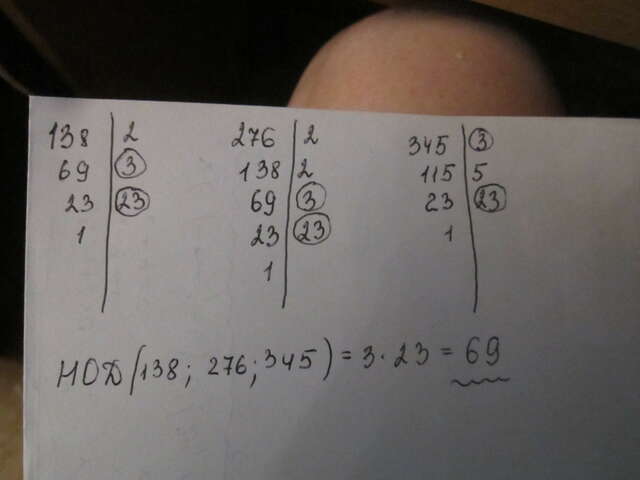 138 | 2 276 | 2 345 | 3
69 | 3 138 | 2 115 | 5
23 | 23 69 | 3 23 | 23
1 | 23 | 23 1 |
1 |
НОД(138; 276; 345) = 3 · 23 = 69